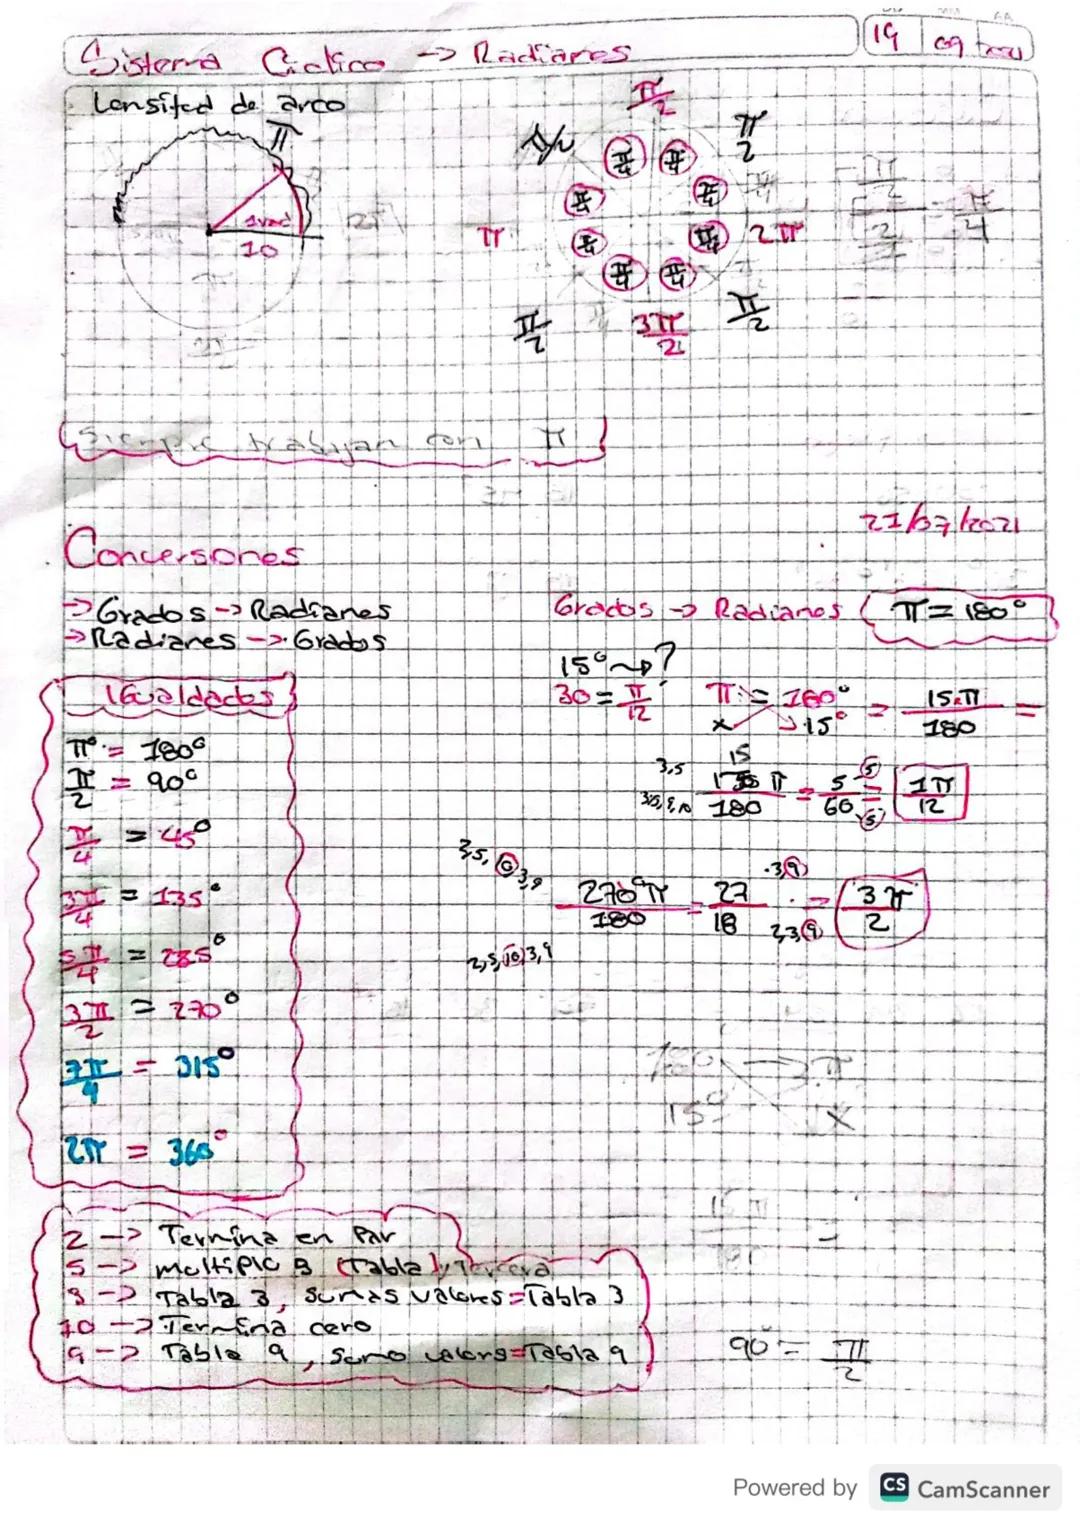 Sistema Ciclico -> Radianes
19 09
Lonsitud de arco
π
1rad
10
π/2
π/2
π/4 π/4
π/4 π/4
π 2π
π/4 π/4
π/4 π/4
π/2 3π/2 π/2
π/2 / 2 = π/4
Siempre trabajan con π
21/07/2021
Conversiones
-> Grados -> Radianes
-> Radianes -> Grados
Grados -> Radianes π = 180°
Igualdades
π° = 180°
π/2 = 90°
π/4 = 45°
3π/4 = 135°
5π/4 = 225°
3π/2 = 270°
7π/4 = 315°
2π = 360°
15° ~> ?
30 = π/12 π = 180° = 15.π/180 =
x 15°
3,5 15 π/180 = 5/60 = 1π/12
5
5
3,5, 3,9 270°π/180 = 27/18 .3 9 = 3π/2
2,3 9
2,5,10,3,9
180 -> π
15° x
15 π
90° = π/2
2 -> Termina en Par
5 -> multiplo 5 (Tabla)
3 -> Tabla 3, sumas valores = Tabla 3
10 -> Termina cero
9 -> Tabla 9, sumo valors = Tabla 9
Powered by CS CamScanner